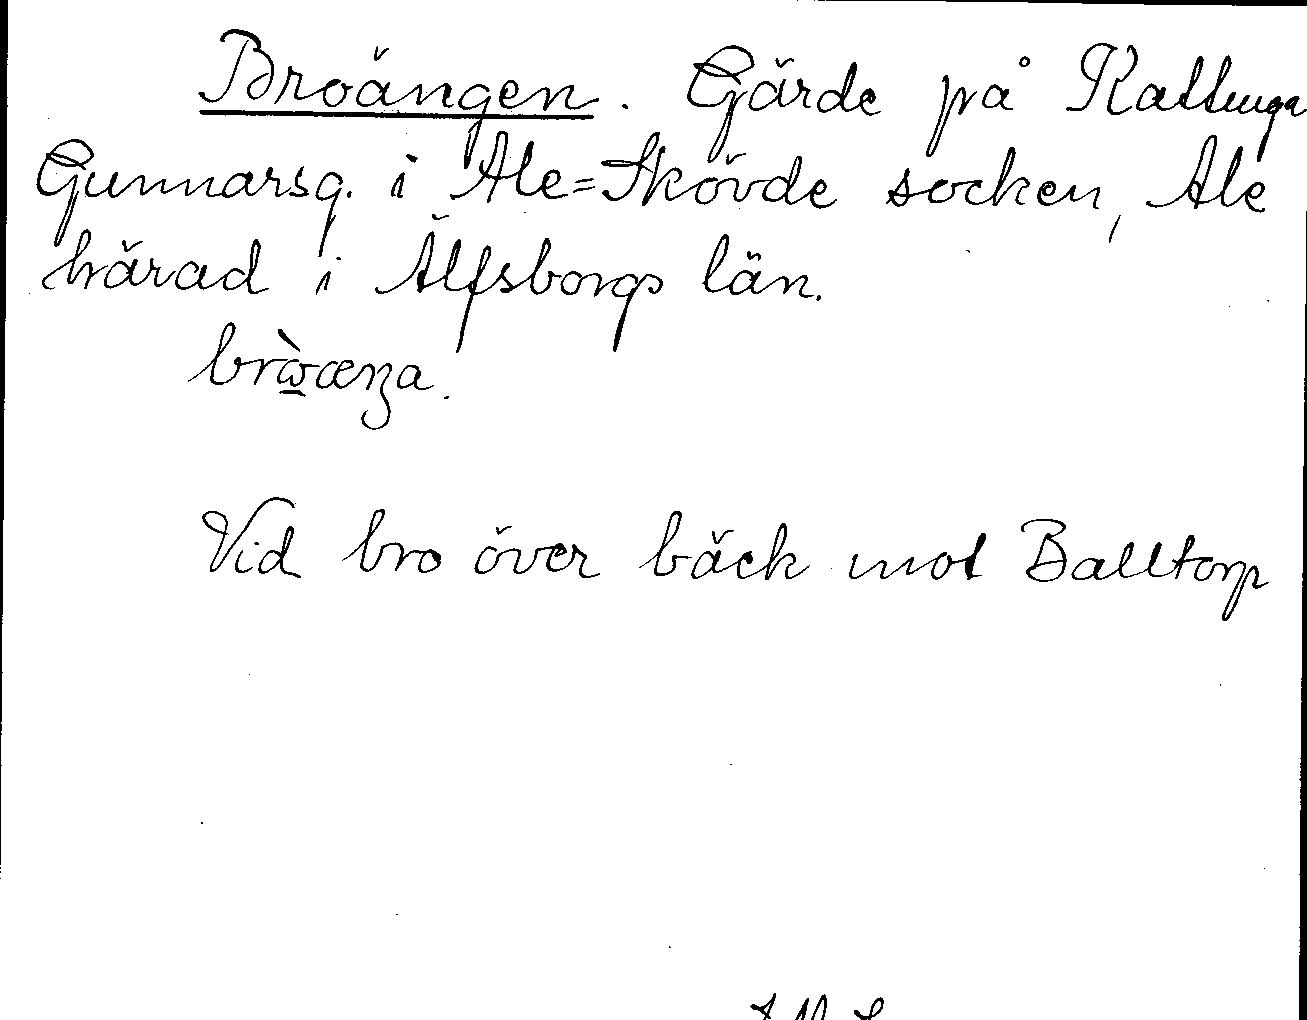 Broängen. Gärde på Kattunga
Gunnarsg. i Ale=Skövde socken, Ale
härad i Älfsborgs län.
bròæŋa.
Vid bro över bäck mot Balltorp